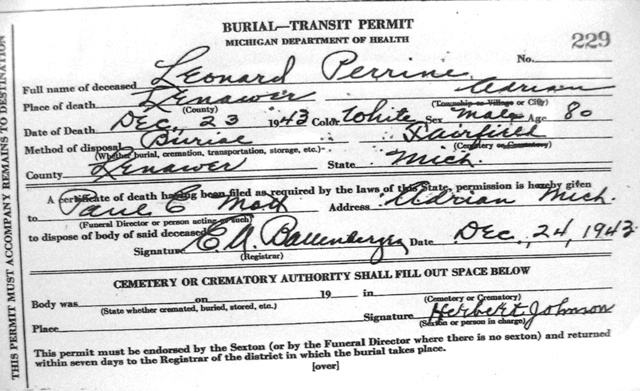 BURIAL—TRANSIT PERMIT
MICHIGAN DEPARTMENT OF HEALTH
No. 229
Full name of deceased Leonard Perrine
Place of death Lenawee Adrian
(County) (Township or Village or City)
Date of Death Dec. 23 1943 Color White Sex Male Age 80
Method of disposal Burial Fairfield
(Whether burial, cremation, transportation, storage, etc.) (Cemetery or Crematory)
County Lenawee State Mich.
A certificate of death having been filed as required by the laws of this State, permission is hereby given
to Paul E Address Adrian Mich.
(Funeral Director or person acting as such)
to dispose of body of said deceased.
Signature E. A. Ballenberger Date Dec. 24, 1943
(Registrar)
CEMETERY OR CREMATORY AUTHORITY SHALL FILL OUT SPACE BELOW
Body was on 19 in
(State whether cremated, buried, stored, etc.) (Cemetery or Crematory)
Place Signature Herbert Johnson
(Sexton or person in charge)
This permit must be endorsed by the Sexton (or by the Funeral Director where there is no sexton) and returned
within seven days to the Registrar of the district in which the burial takes place.
[over]
THIS PERMIT MUST ACCOMPANY REMAINS TO DESTINATION